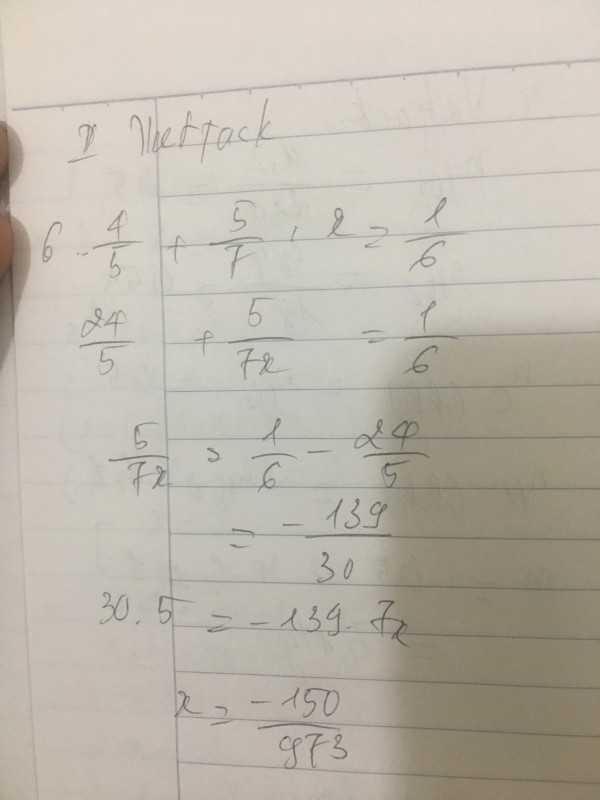 6 . 4/5 + 5/7 : x = 1/6
24/5 + 5/7x = 1/6
5/7x = 1/6 - 24/5
= -139/30
30.5 = -139.7x
x = -150/973